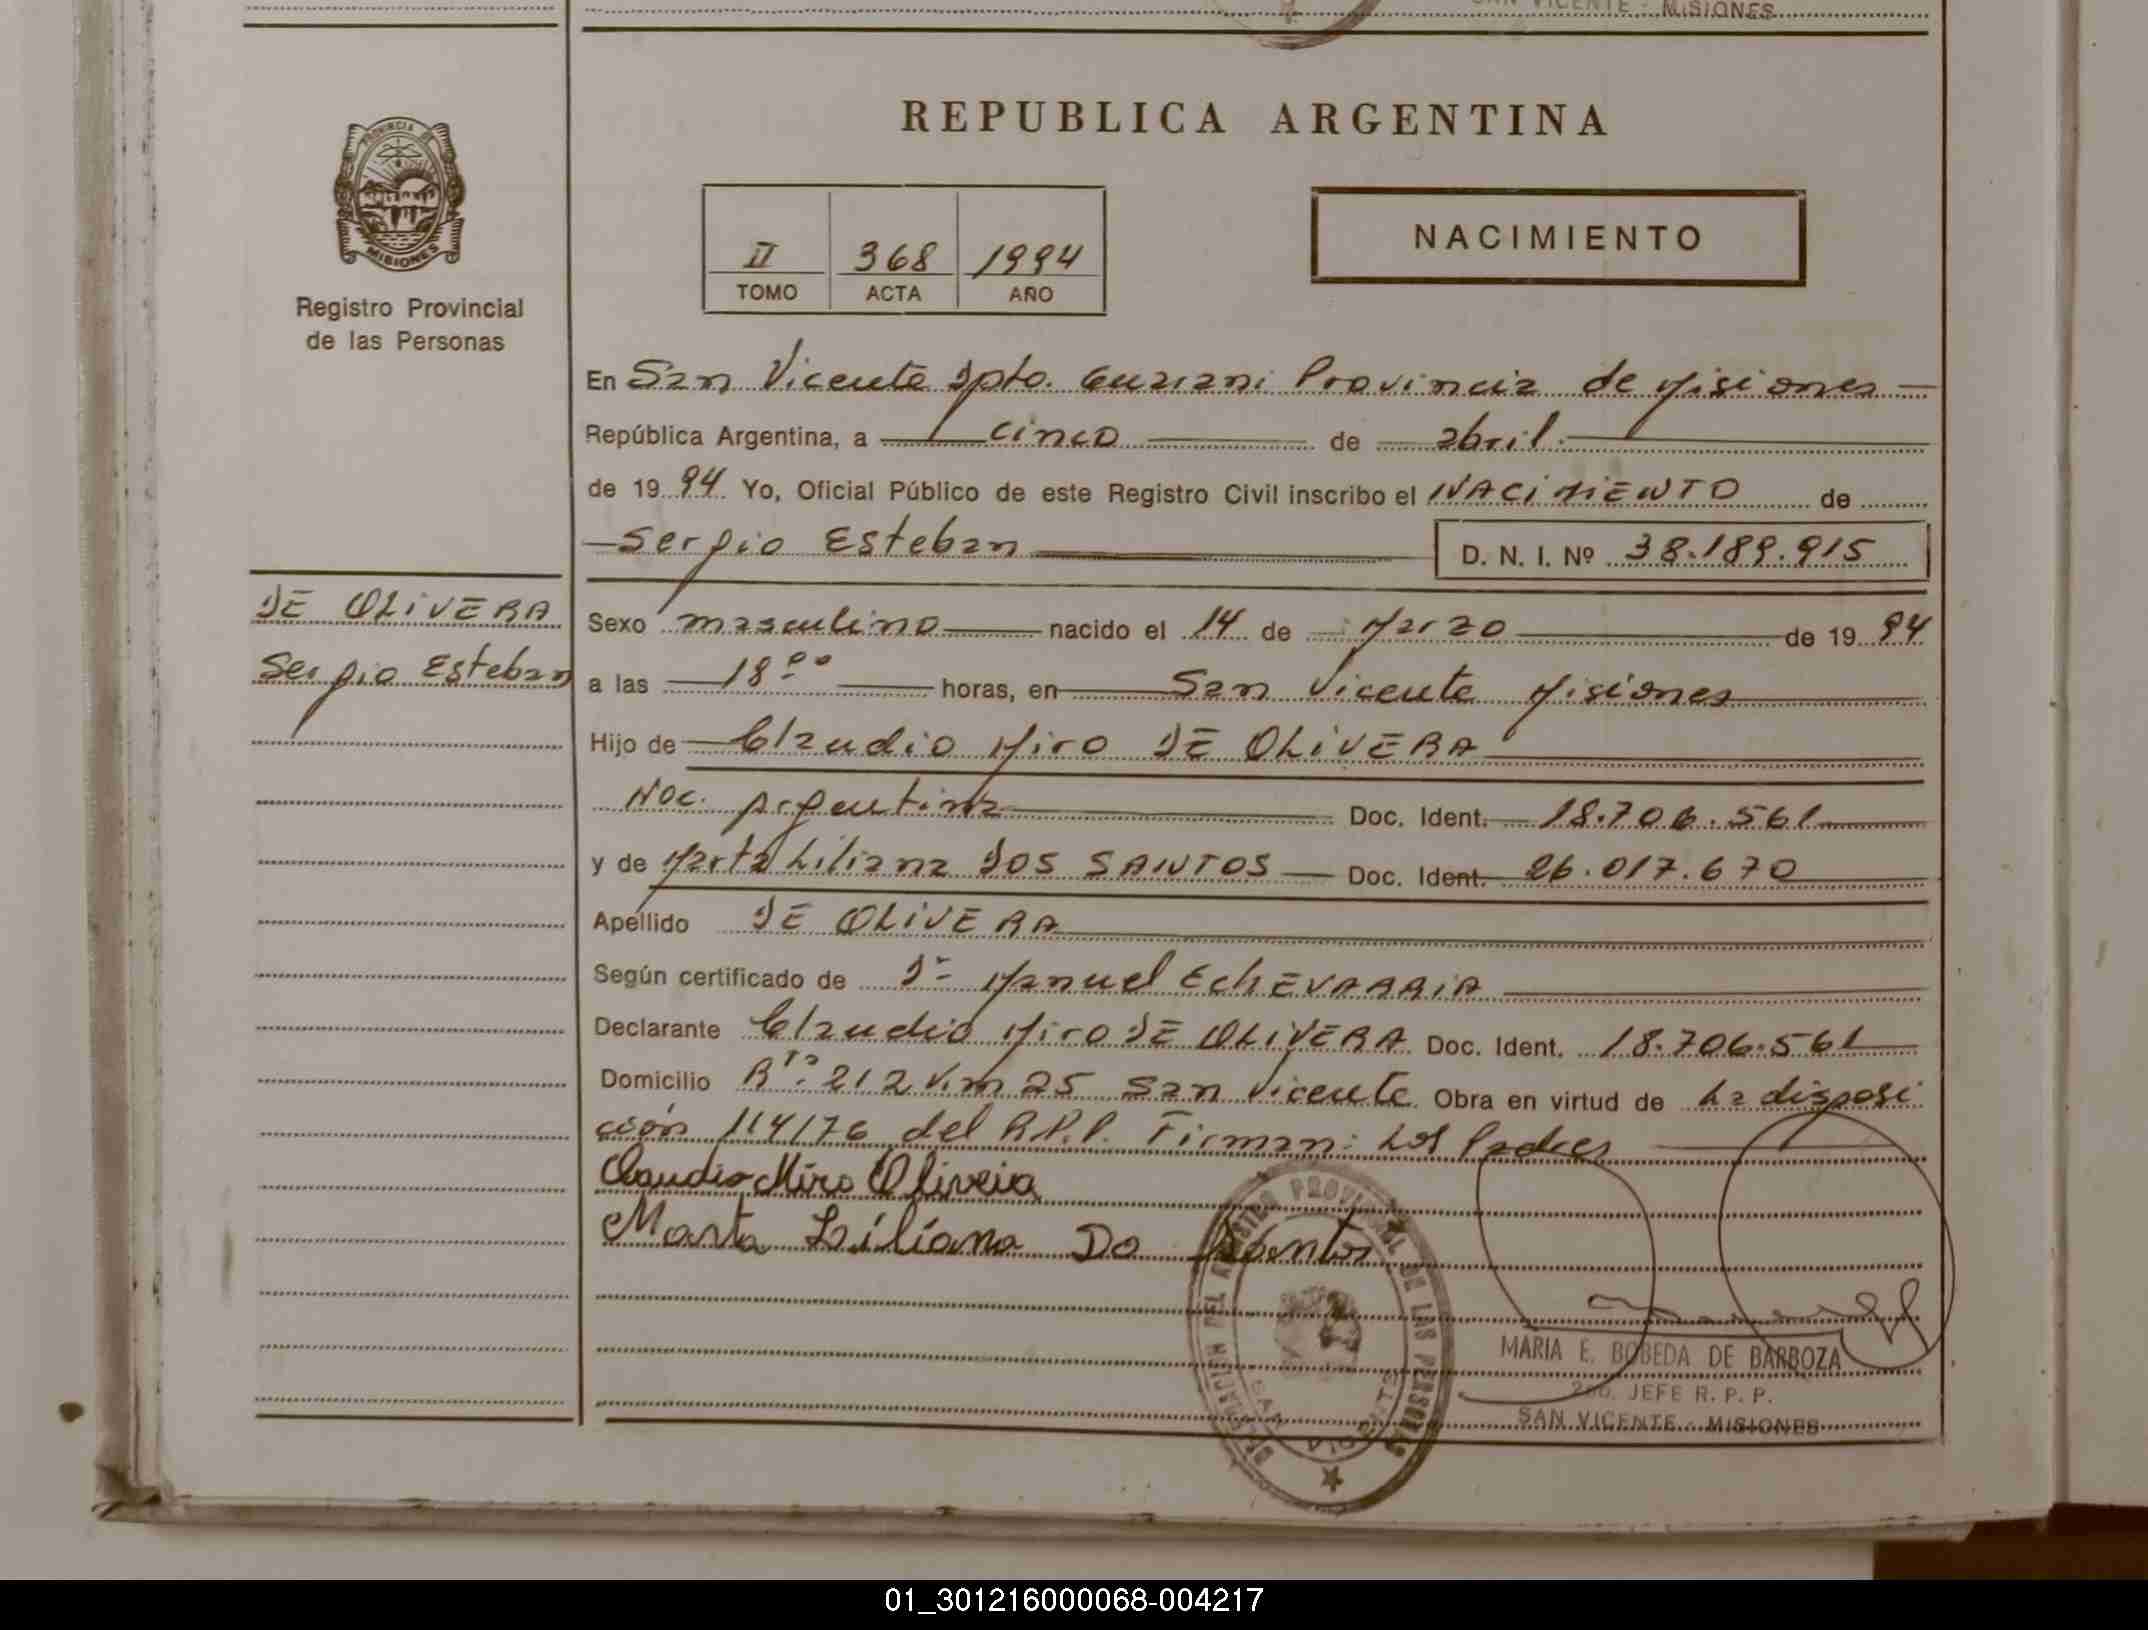 SAN VICENTE - MISIONES
REPUBLICA ARGENTINA
PROVINCIA DE
MISIONES
Registro Provincial
de las Personas
II 368 1994
TOMO ACTA AÑO
NACIMIENTO
En San Vicente Dpto. Guarani Provincia de Misiones
República Argentina, a cinco de abril.
de 1994 Yo, Oficial Público de este Registro Civil inscribo el NACIMIENTO de
Sergio Esteban
D. N. I. Nº 38.189.915
DE OLIVERA
Sergio Esteban
Sexo masculino nacido el 14 de Marzo de 1994
a las 18°° horas, en San Vicente Misiones
Hijo de Claudio Miro DE OLIVERA
Nac. Argentina Doc. Ident. 18.706.561
y de Marta Liliana DOS SANTOS Doc. Ident. 26.017.670
Apellido DE OLIVERA
Según certificado de Dr Manuel EchEVARRIA
Declarante Claudio Miro DE OLIVERA Doc. Ident. 18.706.561
Domicilio Rta. 212 Km 25 San Vicente Obra en virtud de La disposi
ción 114/76 del R.P.P. Firman: Los Padres
Claudio Miro Oliveira
Marta Liliana Do Santos
DELEGACION DEL REGISTRO PROVINCIAL DE LAS PERSONAS
SAN VICENTE
MARIA E. BOBEDA DE BARBOZA
2do. JEFE R. P. P.
SAN VICENTE - MISIONES
01_301216000068-004217